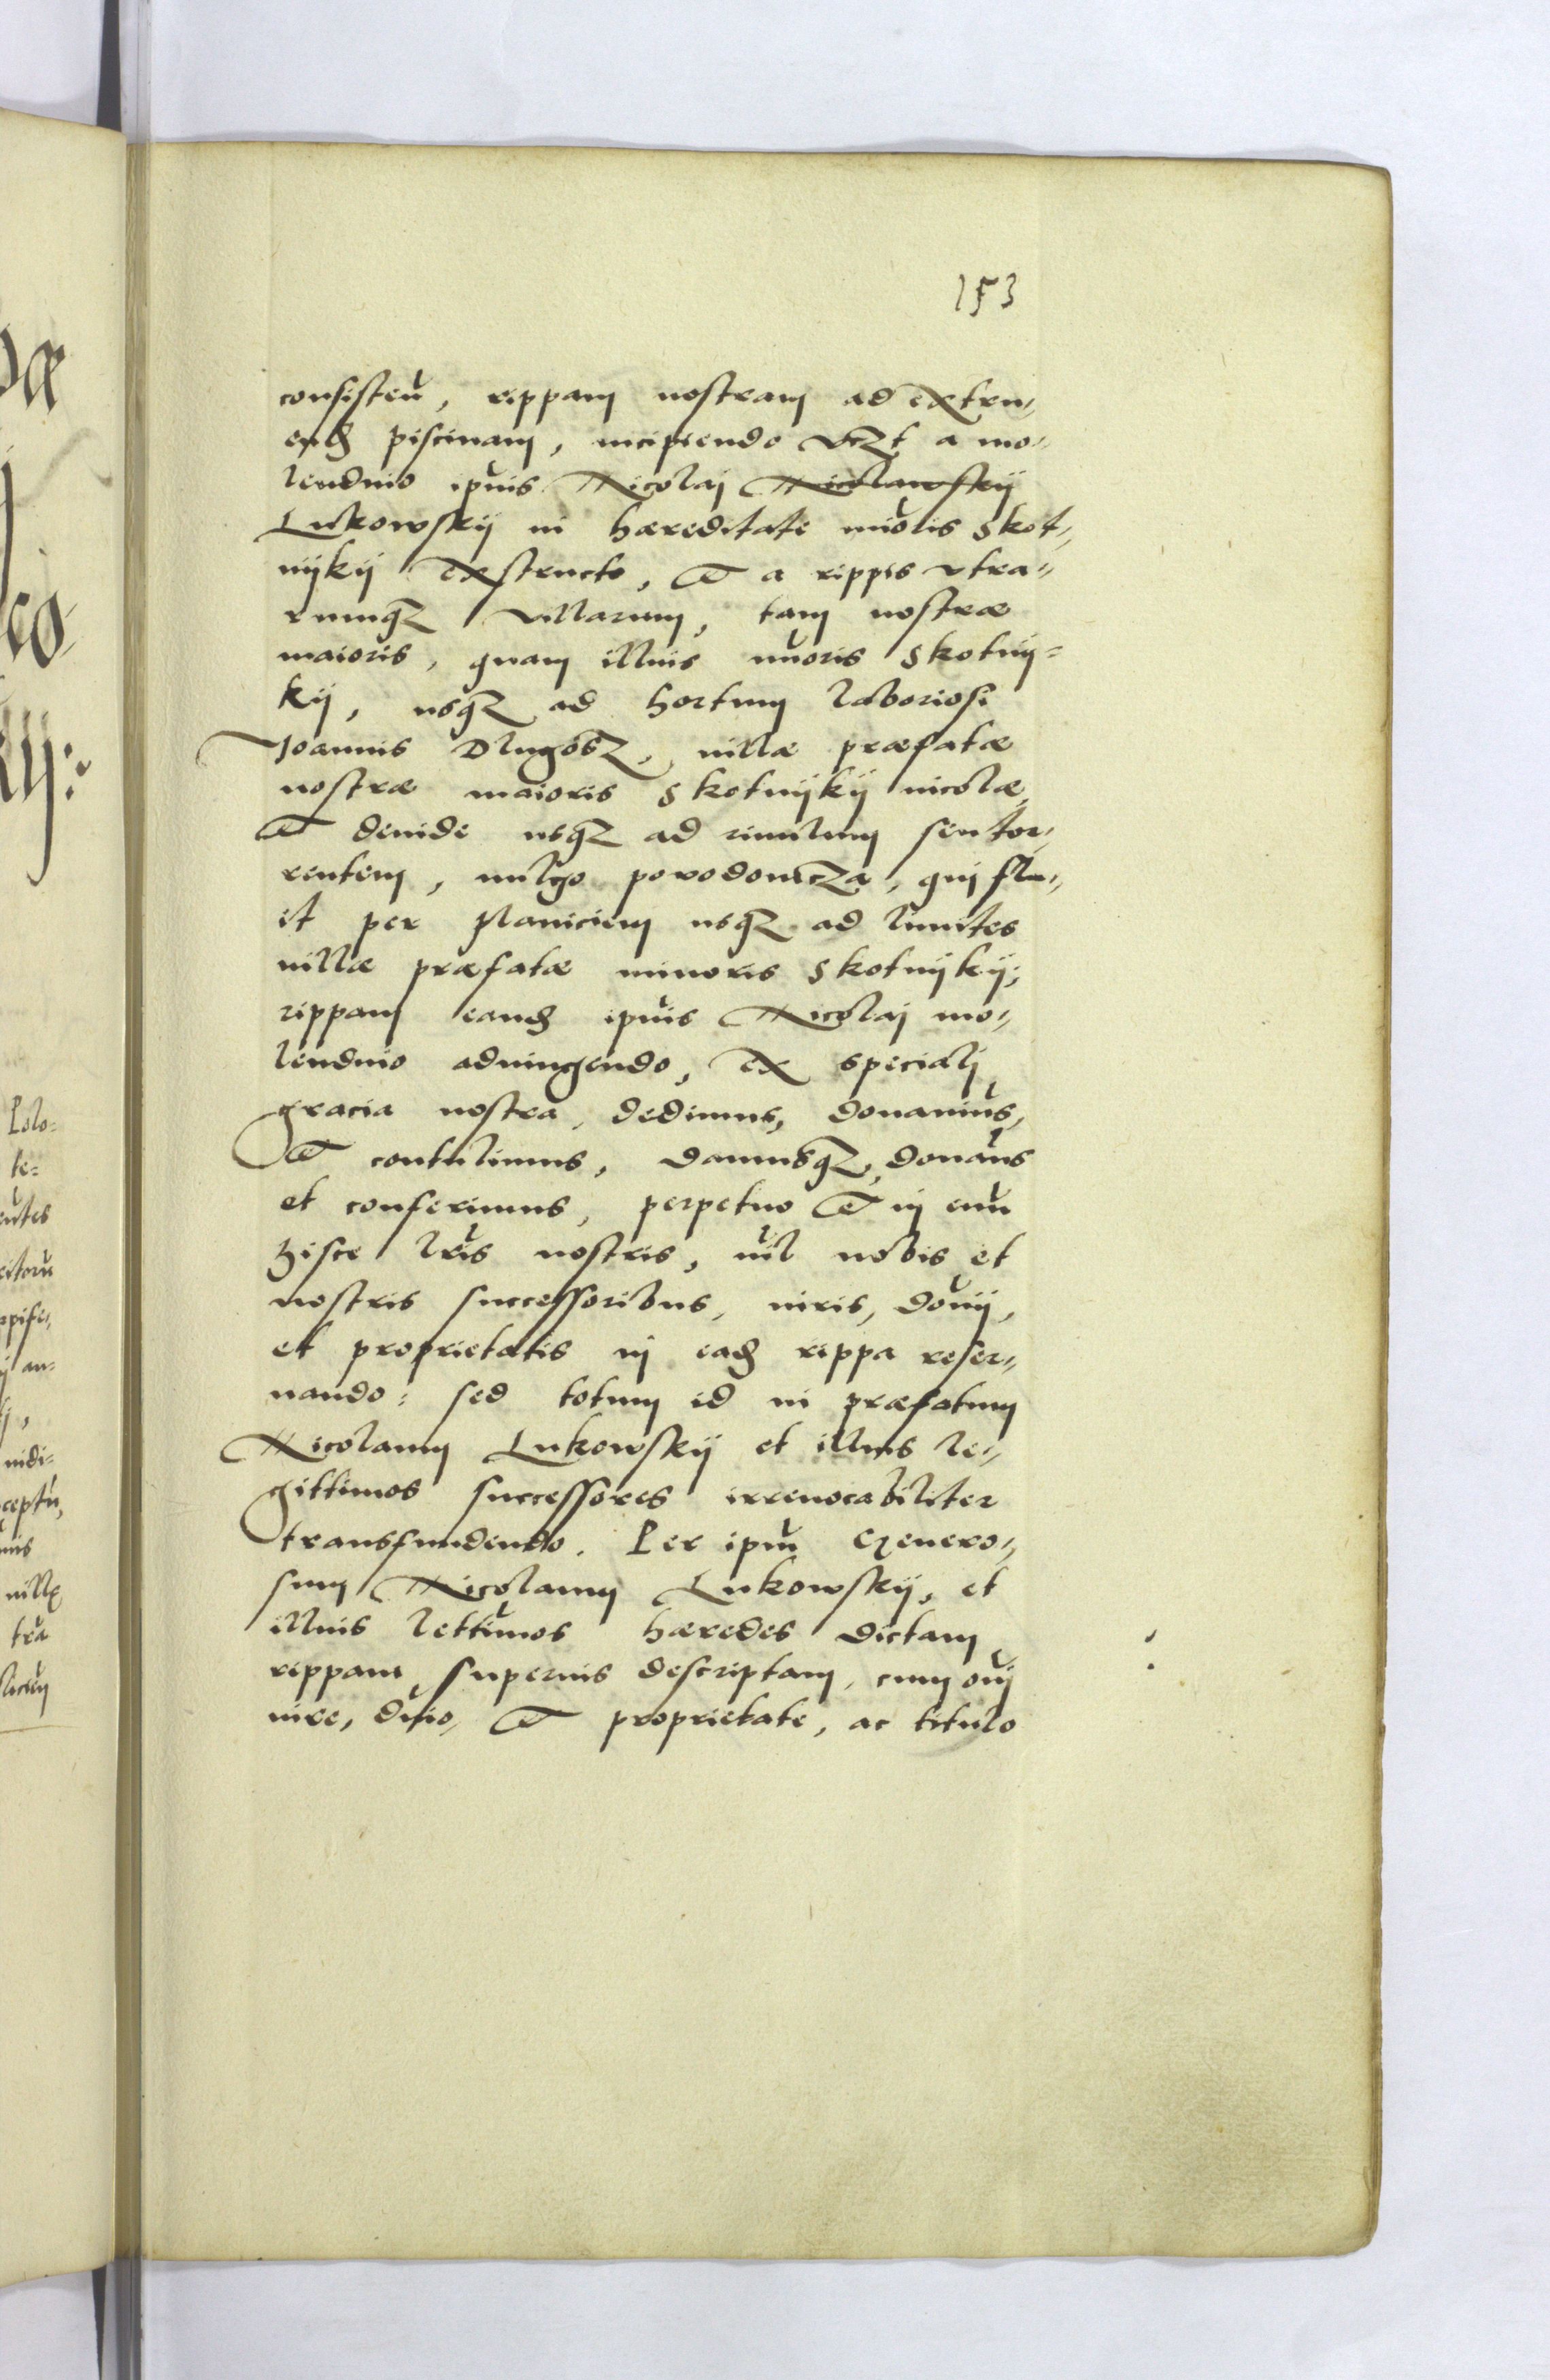 153
consisteñ, rippam nostram ad extru„
end̃ piscinam, incipiendo vcꝫt a mo„
lendino ipsius Nicolaj Nicolawskij
Lukowskij in hæreditate mĩoris Skot„
nijkij exstructo, et a rippis vtra„
rumqꝫ villarum, tam nostræ
maioris, quam illius mĩoris Skotnij=
kij, usqꝫ ad hortum laboriosi
Joannis Dlugosz, uillæ præfatæ
nostræ maioris Skotnijkij incolæ,
et deinde usqꝫ ad riuulum seu tor„
rentem, uulgo powodowcza, qui flu„
it per planiciem usqꝫ ad limites
uillæ præfatæ minoris Skotnijkij,
rippam eand̃ ipsius Nicolaj mo„
lendino adiungendo, ex specialj
gracia nostra, dedimus, donauimus,
et contulimus, damusqꝫ, donam̃us
et conferimus, perpetuo et in euũ
hisce lr̃is nostris, nil nobis et
nostris successoribus, iuris, dom̃ij,
et proprietatis in ead̃ rippa reser„
uando: sed totum id in præfatum
Nicolaum Lukowskij et illius le„
gittimos successores irreuocabiliter
transfundendo. Per ipsũ Genero„
sum Nicolaum Lukowskij, et
illius lettimos hæredes dictam
rippam superius descriptam, cum om̃j
iure, dñio, et proprietate, ac titulo
Polo=
te=